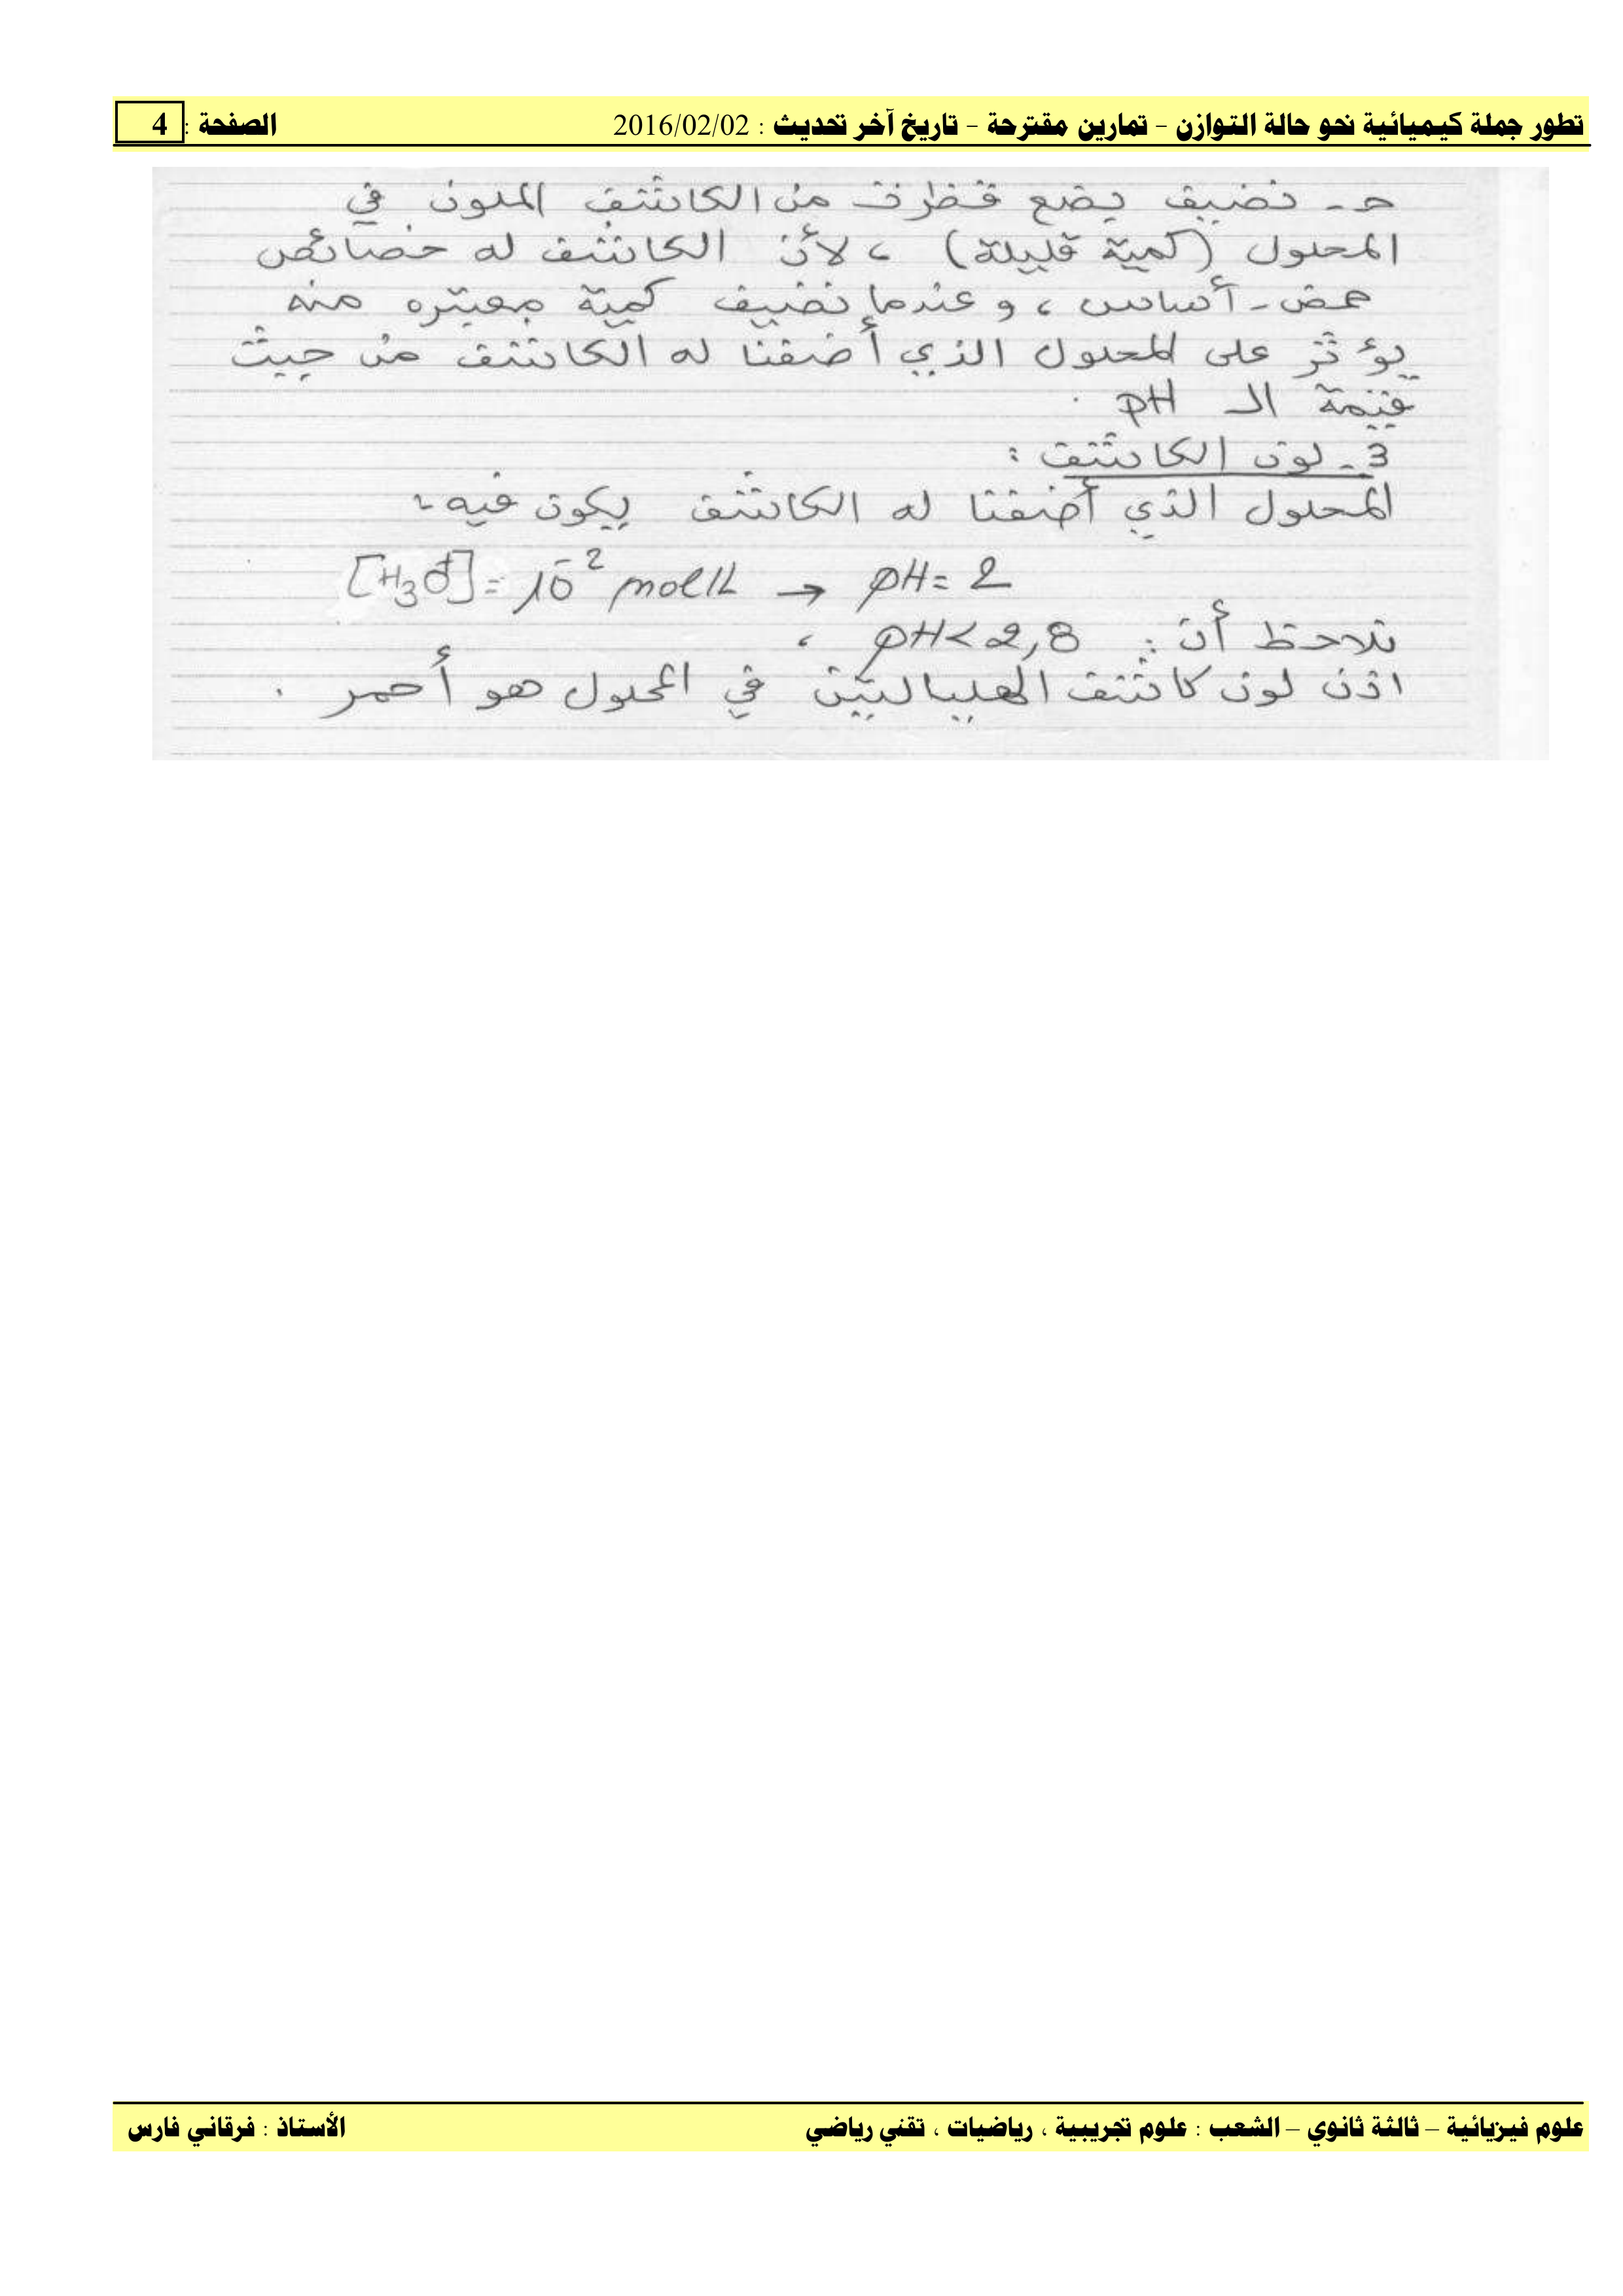 تطور جملة كيميائية نحو حالة التوازن – تمارين مقترحة – تاريخ آخر تحديث : 2016/02/02 الصفحة : 4
حـ - نضيف بضع قطرات من الكاشف الملون في
المحلول (كمية قليلة) ، لأن الكاشف له خصائص
حمض - أساس ، و عندما نضيف كمية معتبره منه
يؤثر على المحلول الذي أضفنا له الكاشف من حيث
قيمة الـ pH .
3 - لون الكاشف :
المحلول الذي أضفنا له الكاشف يكون فيه :
[H₃O⁺] = 10⁻² mol/L → pH = 2
نلاحظ أن : pH < 2,8 ،
اذن لون كاشف الهيليانتين في المحلول هو أحمر .
علوم فيزيائية – ثالثة ثانوي – الشعب : علوم تجريبية ، رياضيات ، تقني رياضي الأستاذ : فرقاني فارس